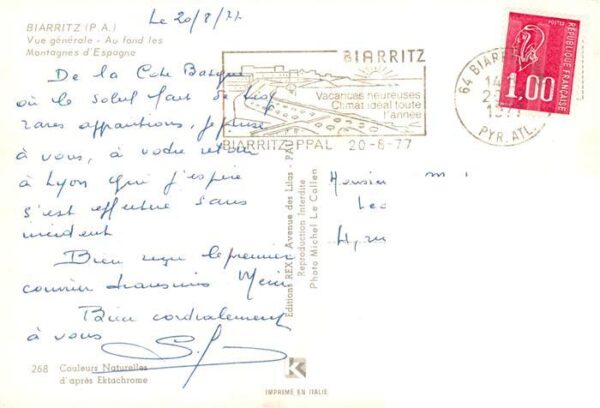 Le 20/8/77
BIARRITZ (P.A.)
Vue générale - Au fond les
Montagnes d'Espagne
De la Cote Basque
où le soleil fait de trop
rares apparitions, je pense
à vous, à votre retour
à Lyon qui j'espère
s'est effectué sans
incident
Bien reçu le premier
courrier transmis Merci
Bien cordialement
à vous
268 Couleurs Naturelles
d'après Ektachrome
BIARRITZ
Vacances heureuses
Climat idéal toute
l'année
BIARRITZ PPAL 20-8-77
64 BIARR
PYR. ATL.
POSTES
1.00
REPUBLIQUE FRANÇAISE
Monsieur
Editions REX, Avenue des Lilas - PAU
Reproduction Interdite
Photo Michel Le Collen
K
IMPRIMÉ EN ITALIE